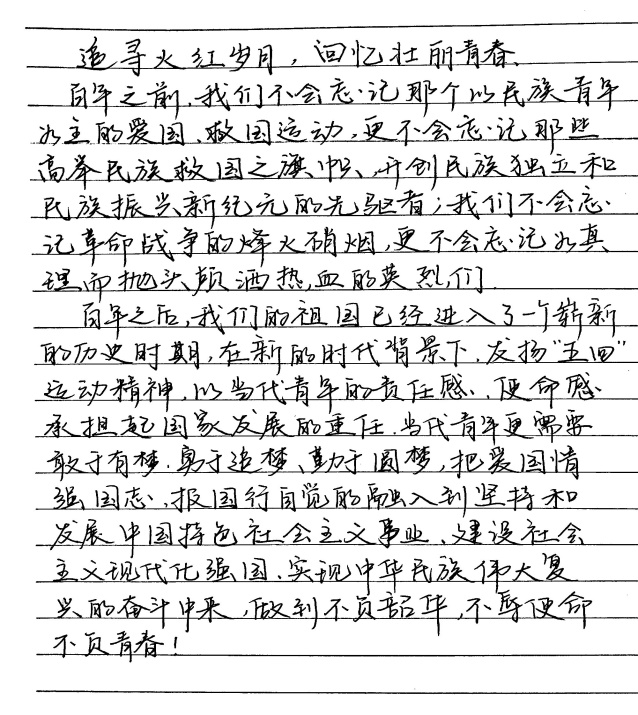 追寻火红岁月，回忆壮丽青春、
百年之前，我们不会忘记那个以民族青年
为主的爱国、救国运动，更不会忘记那些
高举民族救国之旗帜、开创民族独立和
民族振兴新纪元的先驱者；我们不会忘
记革命战争的烽火硝烟，更不会忘记为真
理而抛头颅洒热血的英烈们.
百年之后，我们的祖国已经进入了一个崭新
的历史时期，在新的时代背景下，发扬“五四”
运动精神，以当代青年的责任感、使命感
承担起国家发展的重任.当代青年更需要
敢于有梦.勇于追梦、勤于圆梦，把爱国情
强国志、报国行自觉的融入到坚持和
发展中国特色社会主义事业、建设社会
主义现代化强国.实现中华民族伟大复
兴的奋斗中来，做到不负韶华，不辱使命
不负青春！